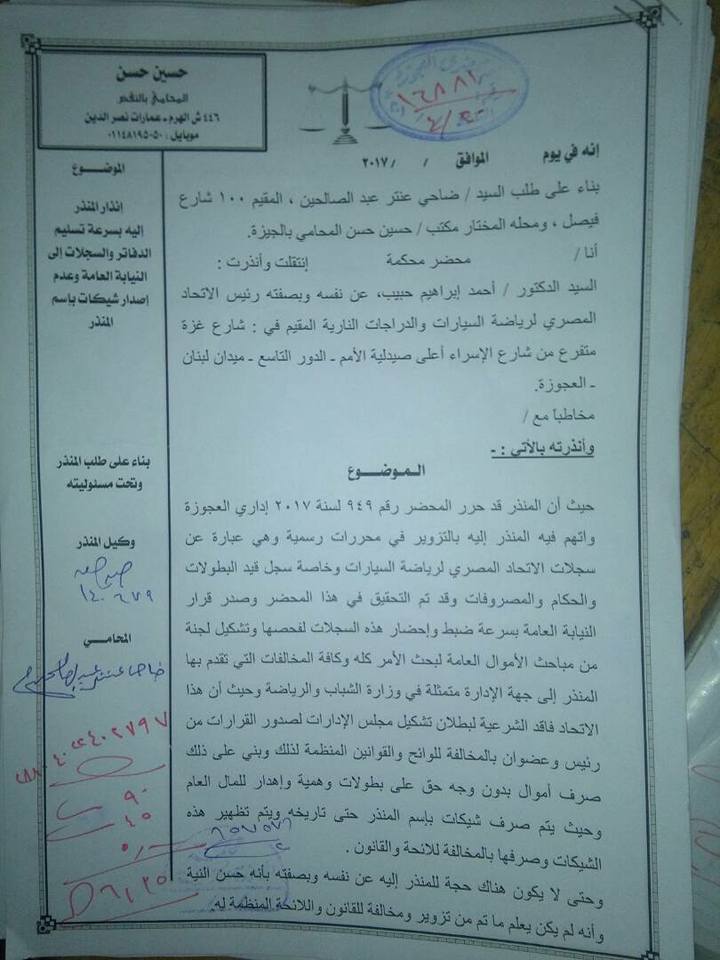 حسين حسن
المحامي بالنقض
٤٤٦ ش الهرم ـ عمارات نصر الدين
موبايل : ٠١١٤٨١٩٥٠٥٠
١٦٨٨٢
إنه في يوم الموافق / / ٢٠١٧
بناء على طلب السيد / ضاحي عنتر عبد الصالحين ، المقيم ١٠٠ شارع
فيصل ، ومحله المختار مكتب / حسين حسن المحامي بالجيزة.
أنا / محضر محكمة إنتقلت وأنذرت :
السيد الدكتور / أحمد إبراهيم حبيب، عن نفسه وبصفته رئيس الاتحاد
المصري لرياضة السيارات والدراجات النارية المقيم في : شارع غزة
متفرع من شارع الإسراء أعلى صيدلية الأمم ـ الدور التاسع ـ ميدان لبنان
ـ العجوزة.
مخاطباً مع /
وأنذرته بالأتي : -
الموضوع
حيث أن المنذر قد حرر المحضر رقم ٩٤٩ لسنة ٢٠١٧ إداري العجوزة
واتهم فيه المنذر إليه بالتزوير في محررات رسمية وهي عبارة عن
سجلات الاتحاد المصري لرياضة السيارات وخاصة سجل قيد البطولات
والحكام والمصروفات وقد تم التحقيق في هذا المحضر وصدر قرار
النيابة العامة بسرعة ضبط وإحضار هذه السجلات لفحصها وتشكيل لجنة
من مباحث الأموال العامة لبحث الأمر كله وكافة المخالفات التي تقدم بها
المنذر إلى جهة الإدارة متمثلة في وزارة الشباب والرياضة وحيث أن هذا
الاتحاد فاقد الشرعية لبطلان تشكيل مجلس الإدارات لصدور القرارات من
رئيس وعضوان بالمخالفة للوائح والقوانين المنظمة لذلك وبني على ذلك
صرف أموال بدون وجه حق على بطولات وهمية وإهدار للمال العام
وحيث يتم صرف شيكات بإسم المنذر حتى تاريخه ويتم تظهير هذه
الشيكات وصرفها بالمخالفة للائحة والقانون .
وحتى لا يكون هناك حجة للمنذر إليه عن نفسه وبصفته بأنه حسن النية
وأنه لم يكن يعلم ما تم من تزوير ومخالفة للقانون واللائحة المنظمة له.
الموضوع
إنذار المنذر
إليه بسرعة تسليم
الدفاتر والسجلات إلى
النيابة العامة وعدم
إصدار شيكات بإسم
المنذر
بناء على طلب المنذر
وتحت مسئوليته
وكيل المنذر
المحامي
٩٠
٤٥